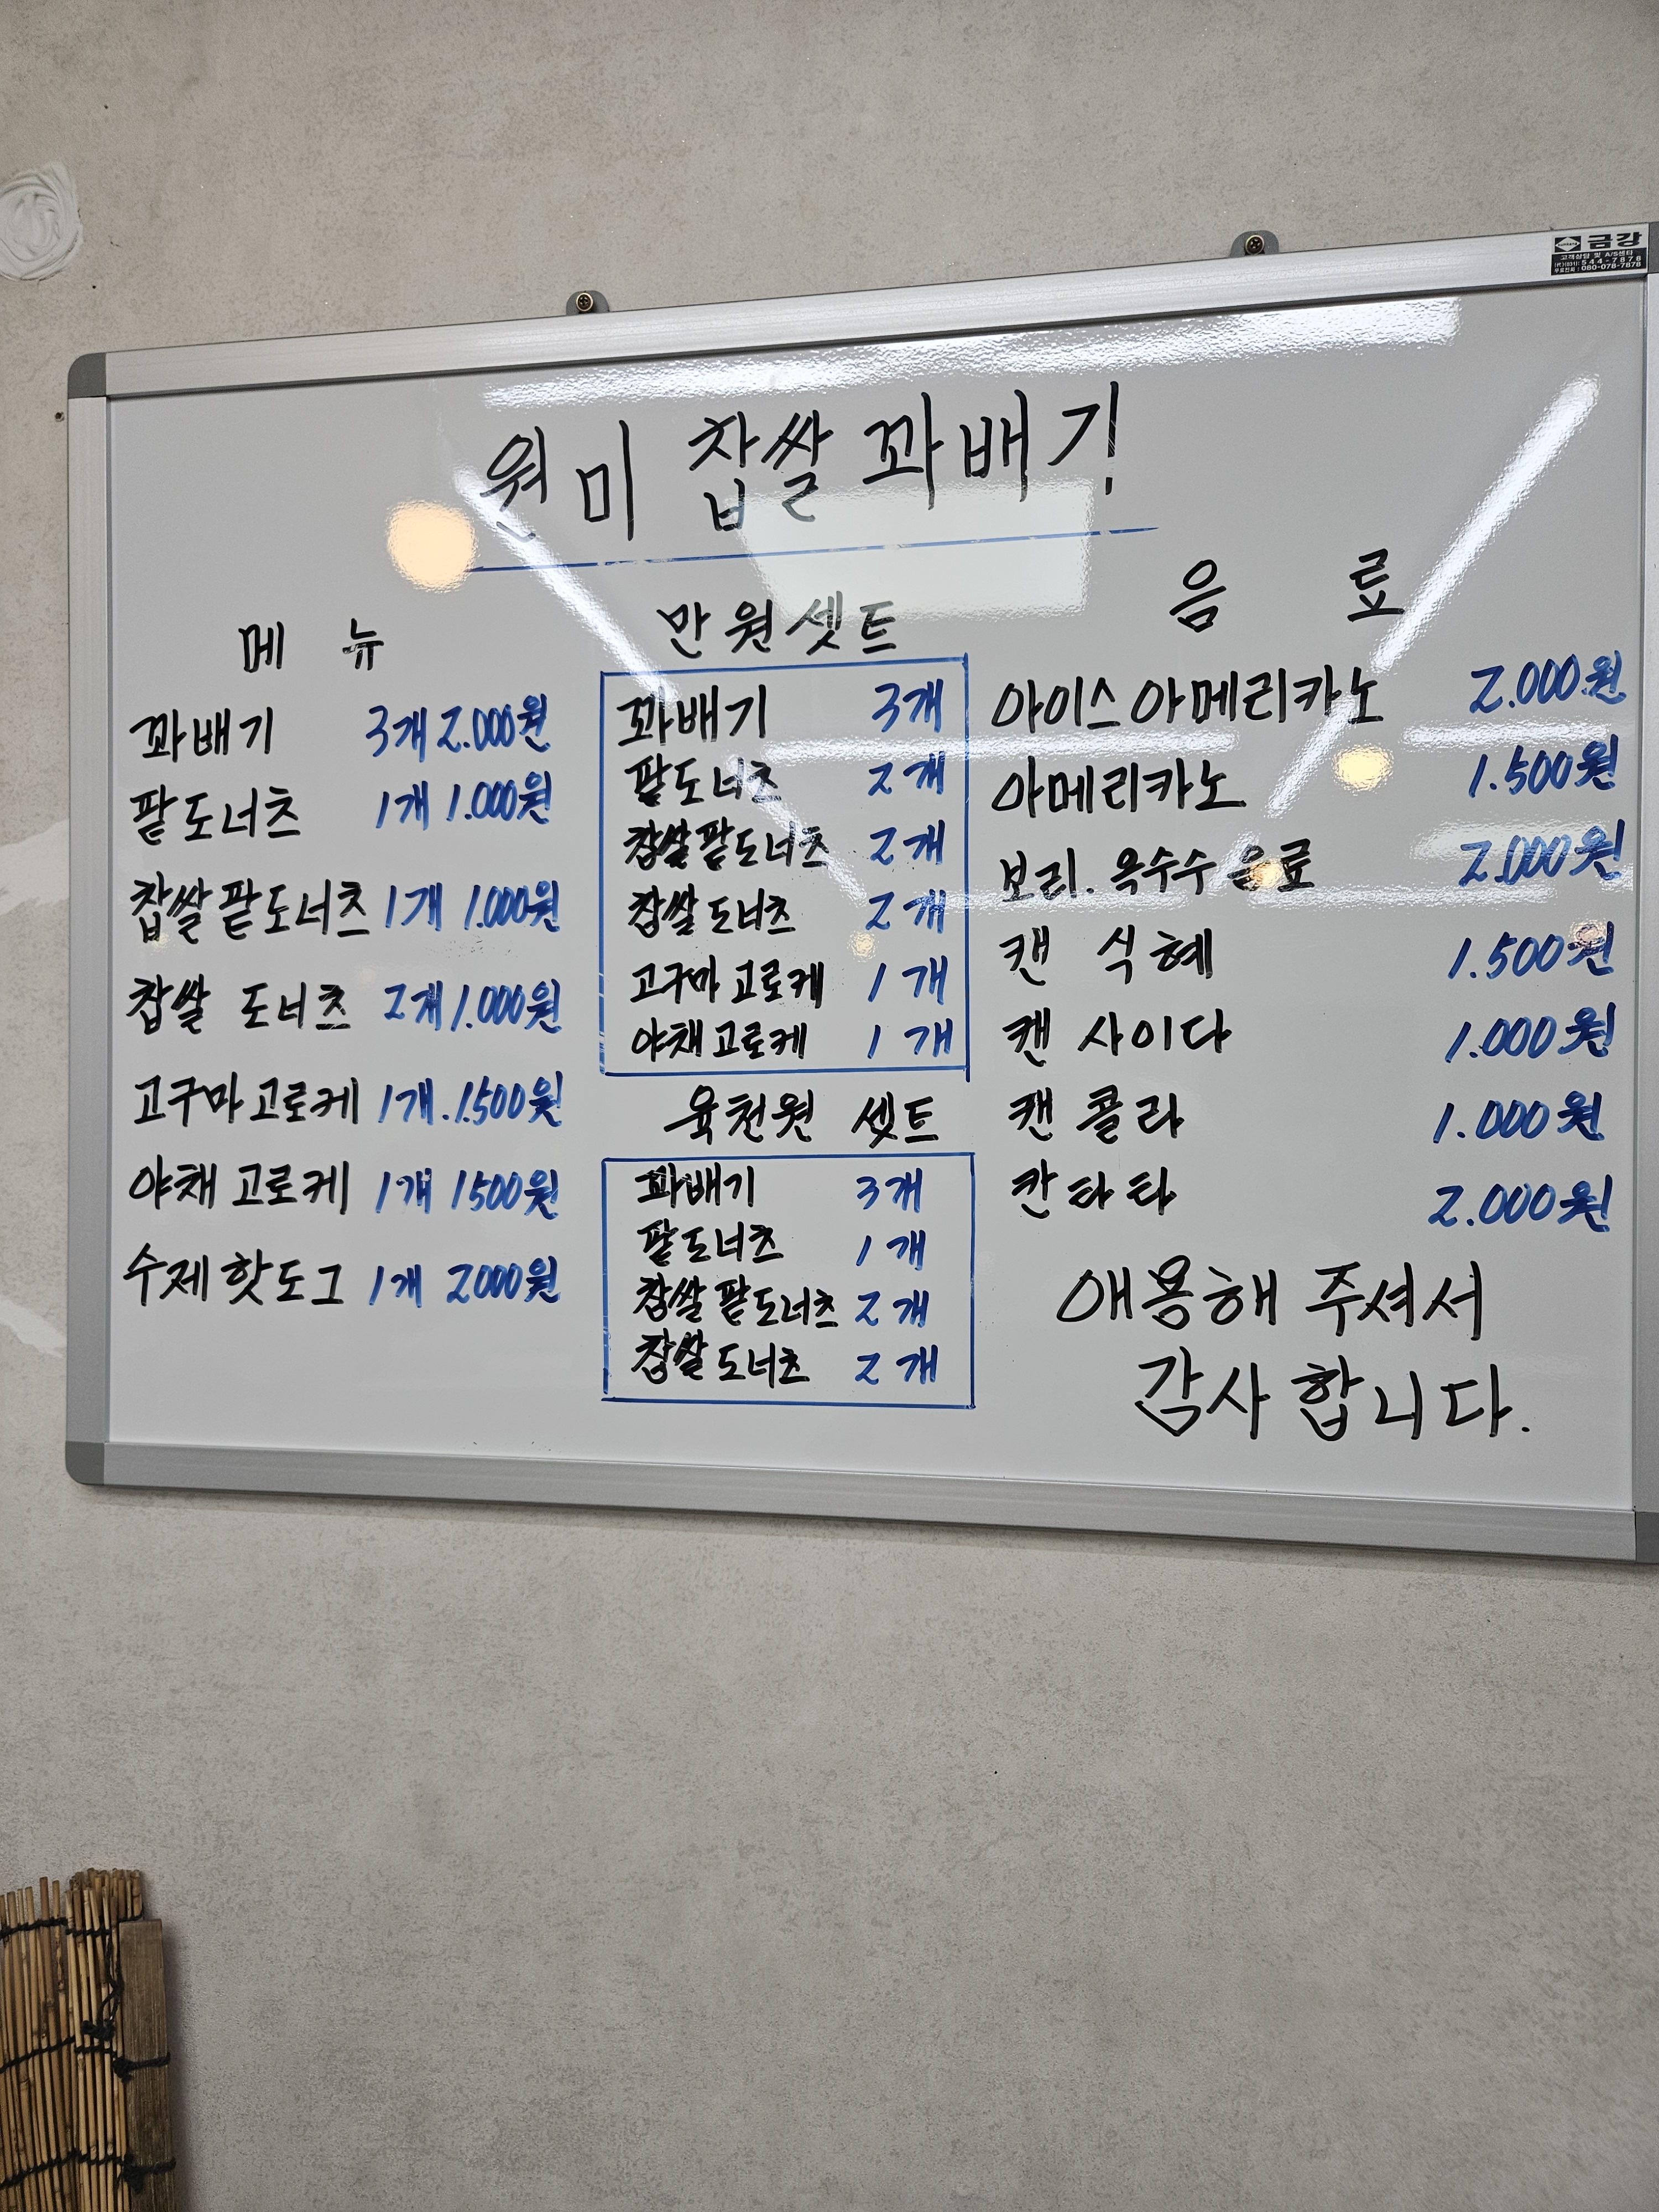 금강
고객상담 및 A/S센타
(代)(031) : 544-7878
무료전화 : 080-078-7878
원미 찹쌀 꽈배기
메 뉴
꽈배기 3개 2.000원
팥도너츠 1개 1.000원
찹쌀팥도너츠 1개 1.000원
찹쌀 도너츠 2개 1.000원
고구마고로케 1개.1.500원
야채 고로케 1개 1500원
수제핫도그 1개 2000원
만원셋트
꽈배기 3개
팥도너츠 2개
찹쌀팥도너츠 2개
찹쌀도너츠 2개
고구마고로케 1개
야채고로케 1개
육천원 셋트
꽈배기 3개
팥도너츠 1개
찹쌀팥도너츠 2개
찹쌀도너츠 2개
음 료
아이스아메리카노 2.000원
아메리카노 1.500원
보리.옥수수음료 2.000원
캔 식혜 1.500원
캔 사이다 1.000원
캔 콜라 1.000원
칸타타 2.000원
애용해 주셔서
감사합니다.